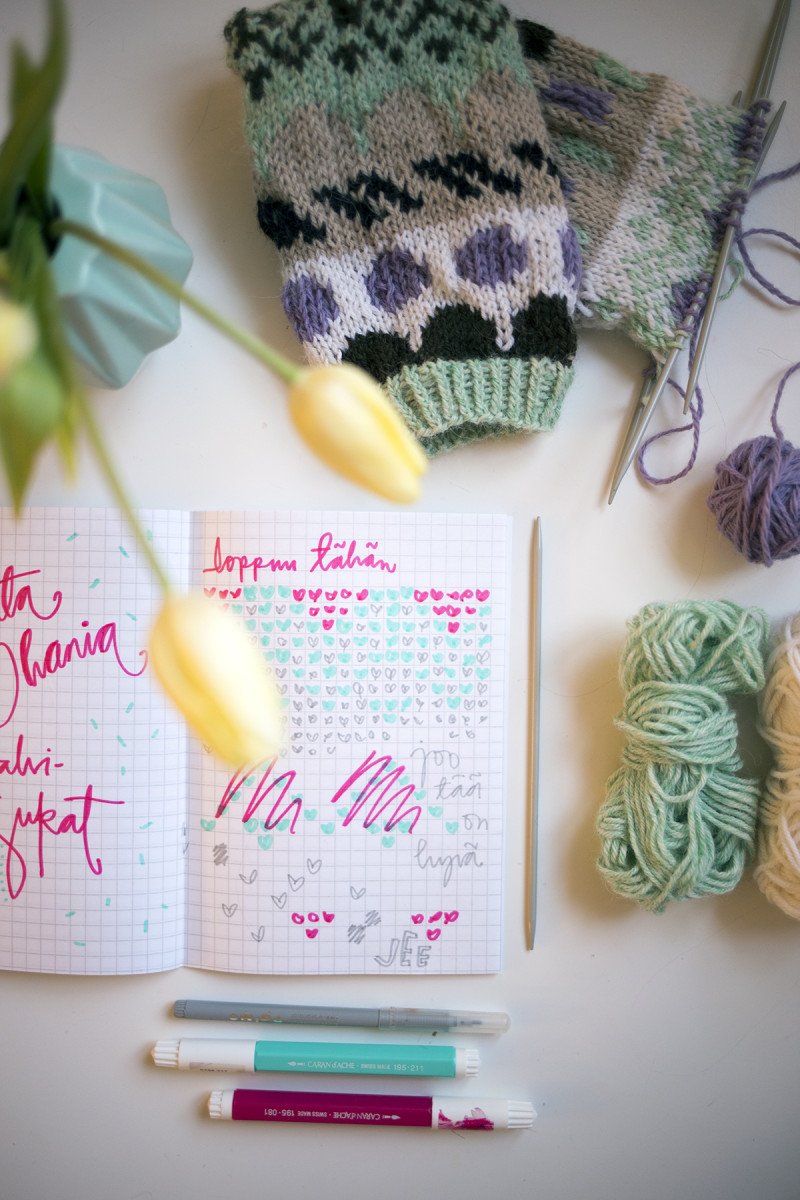 ta
hania
alvi-
jukat
loppuu tähän
joo
tää
on
hyvä
JEE
CARAN d'ACHE · SWISS MADE 195·211
CARAN d'ACHE · SWISS MADE · 195·081